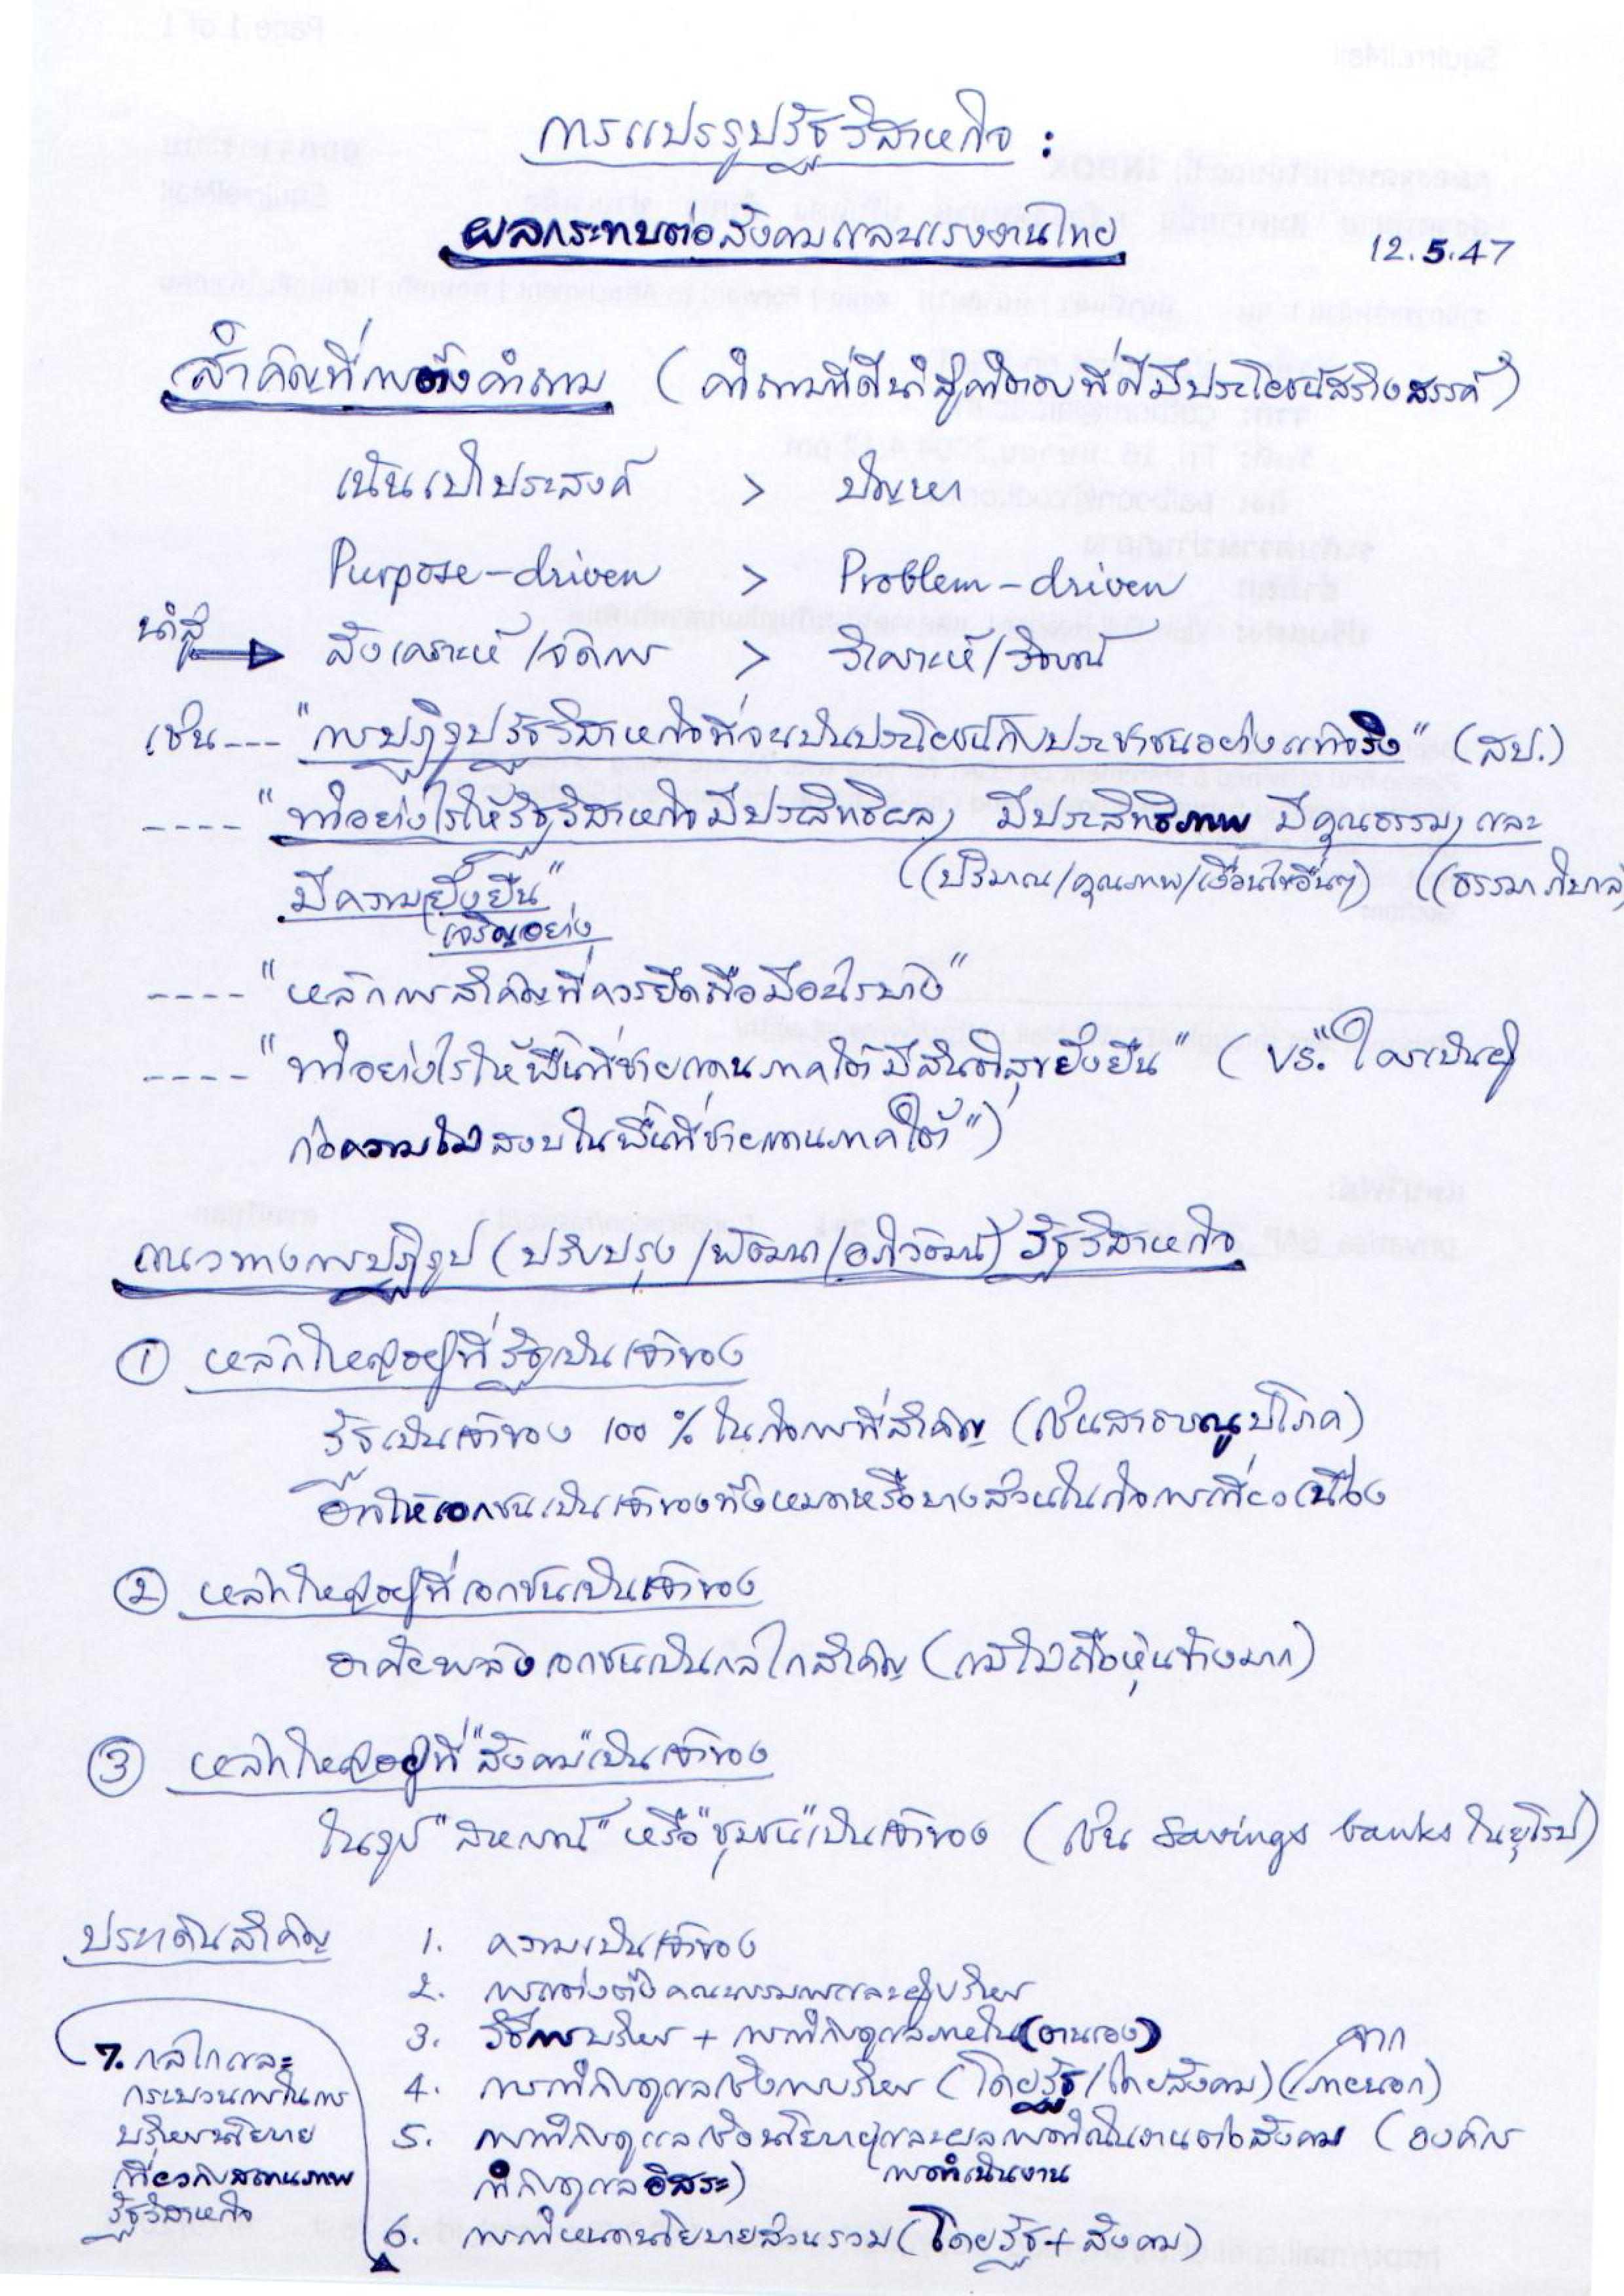 การแปรรูปรัฐวิสาหกิจ :
ผลกระทบต่อสังคมและแรงงานไทย
12.5.47
สำคัญที่การตั้งคำถาม (คำถามที่ดีนำสู่คำตอบที่ดีมีประโยชน์สร้างสรรค์)
เน้นเป้าประสงค์ > ปัญหา
Purpose-driven > Problem-driven
นำสู่
สังเคราะห์/จัดการ > วิเคราะห์/วิจารณ์
เช่น --- "การปฏิรูปรัฐวิสาหกิจที่จะเป็นประโยชน์กับประชาชนอย่างแท้จริง" (สป.)
---- "ทำอย่างไรให้รัฐวิสาหกิจมีประสิทธิผล, มีประสิทธิภาพ มีคุณธรรม, และ
มีความยั่งยืน" ((ปริมาณ/คุณภาพ/เงื่อนไขอื่นๆ) ((ธรรมาภิบาล)
เจริญอย่าง
---- "หลักการสำคัญที่ควรยึดถือมีอะไรบ้าง"
---- "ทำอย่างไรให้พื้นที่ชายแดนภาคใต้มีสันติสุขยั่งยืน" (vs. "ใครเป็นผู้
ก่อความไม่สงบในพื้นที่ชายแดนภาคใต้")
แนวทางการปฏิรูป (ปรับปรุง/พัฒนา/อภิวัฒน์) รัฐวิสาหกิจ
① หลักใหญ่อยู่ที่รัฐเป็นเจ้าของ
รัฐเป็นเจ้าของ 100 % ในกิจการที่สำคัญ (เช่นสาธารณูปโภค)
อาจให้เอกชนเป็นเจ้าของทั้งหมดหรือบางส่วนในกิจการเกี่ยวเนื่อง
② หลักใหญ่อยู่ที่เอกชนเป็นเจ้าของ
อาศัยพลังเอกชนเป็นกลไกสำคัญ (แม้ไม่ถือหุ้นข้างมาก)
③ หลักใหญ่อยู่ที่ "สังคม" เป็นเจ้าของ
ในรูป "สหกรณ์" หรือ "ชุมชน" เป็นเจ้าของ (เช่น Savings banks ในยุโรป)
ประเด็นสำคัญ
1. ความเป็นเจ้าของ
2. การแต่งตั้งคณะกรรมการและผู้บริหาร
3. วิธีการบริหาร + การกำกับดูแลภายใน (ตนเอง)
4. การกำกับดูแลเชิงการบริหาร (โดยรัฐ/โดยสังคม) (จากภายนอก)
5. การกำกับดูแลเชิงนโยบายและผลการดำเนินงานต่อสังคม (องค์กร
กำกับดูแลอิสระ) การดำเนินงาน
6. การกำหนดนโยบายส่วนรวม (โดยรัฐ + สังคม)
7. กลไกและ
กระบวนการในการ
บริหารนโยบาย
เกี่ยวกับสถานภาพ
รัฐวิสาหกิจ